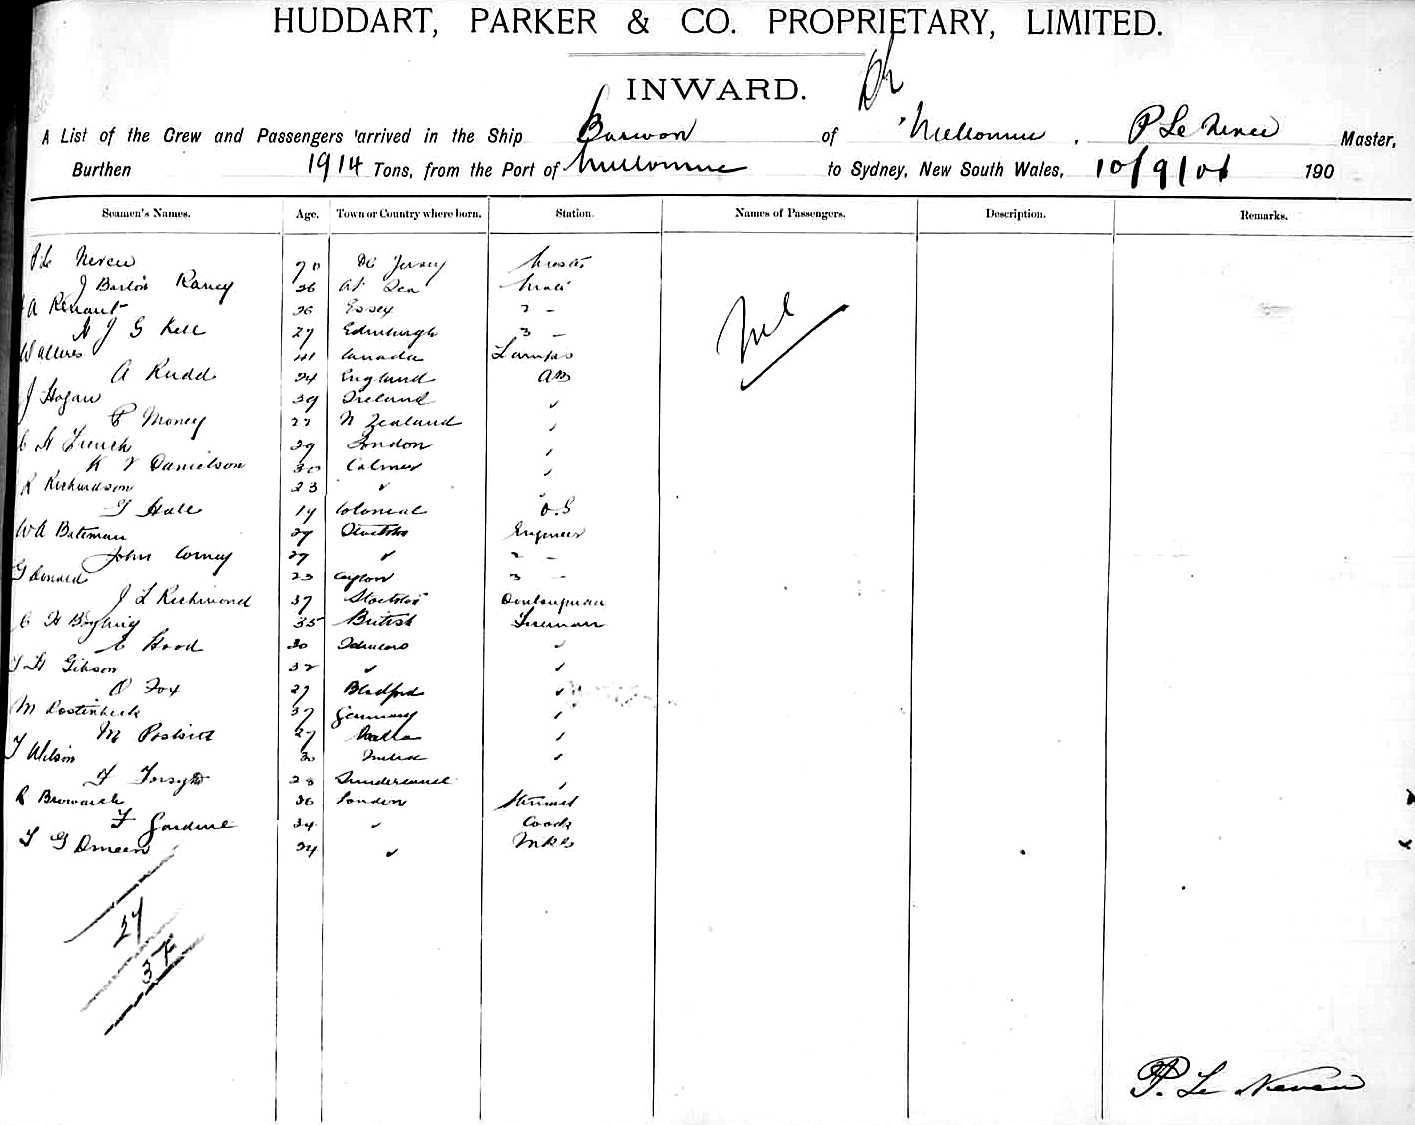 HUDDART, PARKER & CO. PROPRIETARY, LIMITED.
INWARD.
A List of the Crew and Passengers arrived in the Ship Barwon of Melbourne, P Le Neveu Master,
Burthen 1914 Tons, from the Port of Melbourne to Sydney, New South Wales, 10/9/01 190
Seamen's Names. Age. Town or Country where born. Station. Names of Passengers. Description. Remarks.
P Le Neveu Jersey Master
J Barlow Raney 36 At Sea Mate
A Renaut 26 Essex 2 -
H J G Kell 27 Edinburgh 3 -
41 Canada Lamps
A Rudd 24 England AB
J Hogan 39 Ireland ✓
P Money 22 N Zealand ✓
C H French 29 London ✓
K V Danielson 30 ✓
R Richardson 23 ✓
T Hall 19 Colonial O.S
W A Bateman 29 Engineer
John Corney 27 ✓ 2 -
G Donald 23 Ceylon 3 -
J L Richmond 37 Donkeyman
C H 35 British Fireman
E Hood 30 ✓
T H Gibson 32 ✓ ✓
O Fox 27 Bradford ✓
M 37 Germany ✓
M 27 Malta ✓
T Wilson 30 ✓
F Forsyth 28 Sunderland ✓
R 36 London Steward
F Gardine 34 ✓ Cook
T G 24 ✓ MRS
Nil
27
P. Le Neveu